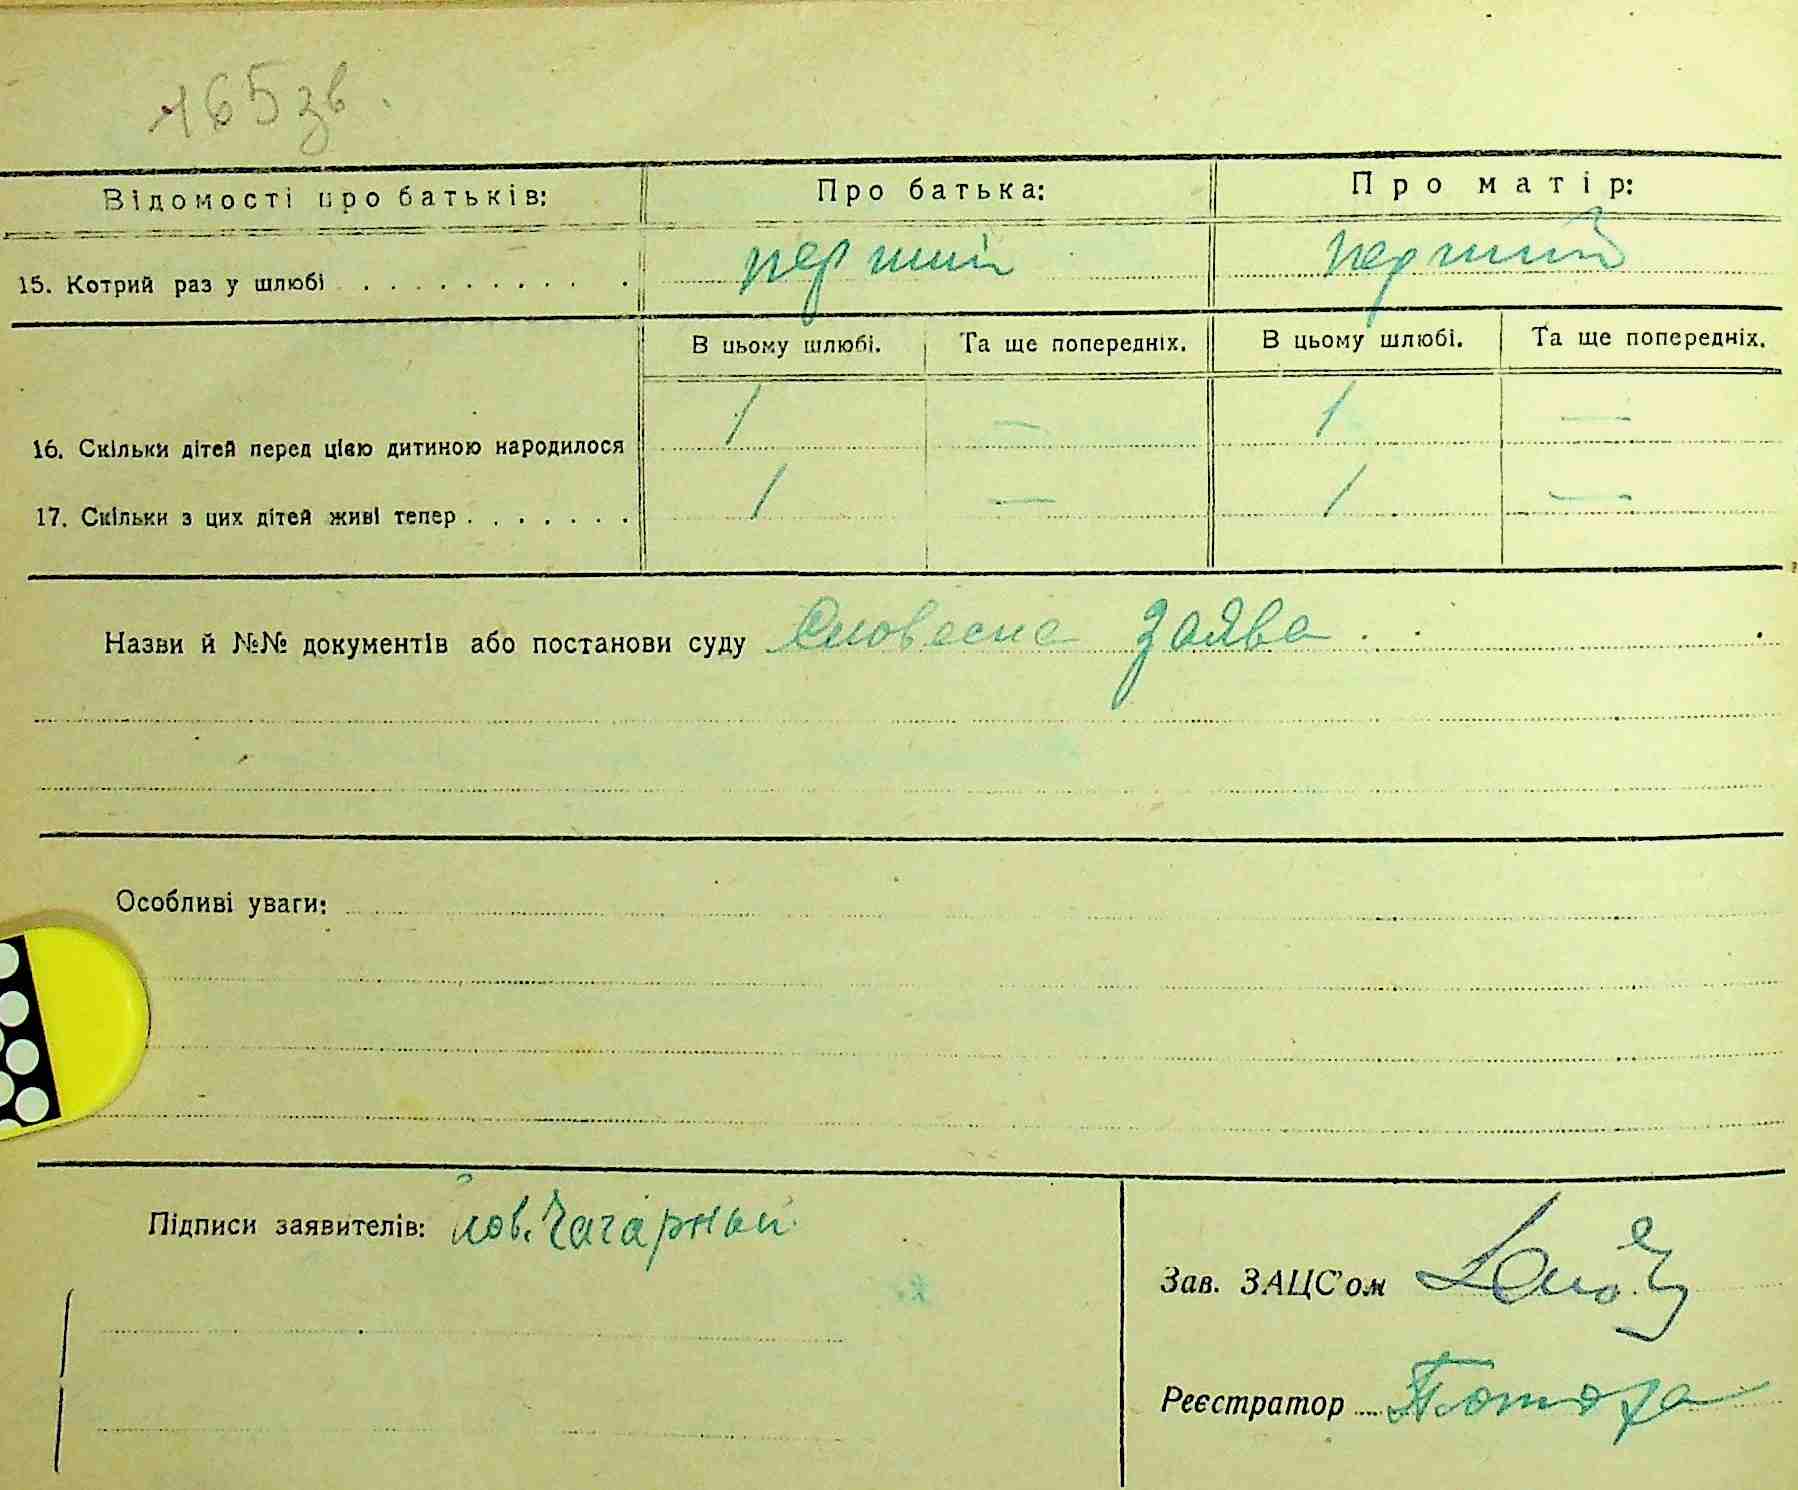 165 зв.
Відомості про батьків: Про батька: Про матір:
15. Котрий раз у шлюбі . . . . . . . . . . перший перший
В цьому шлюбі. Та ще попередніх. В цьому шлюбі. Та ще попередніх.
16. Скільки дітей перед цією дитиною народилося 1 — 1 —
17. Скільки з цих дітей живі тепер . . . . . . . 1 — 1 —
Назви й №№ документів або постанови суду Словесна заява
Особливі уваги:
Підписи заявителів:
Зав. ЗАЦС'ом
Реєстратор